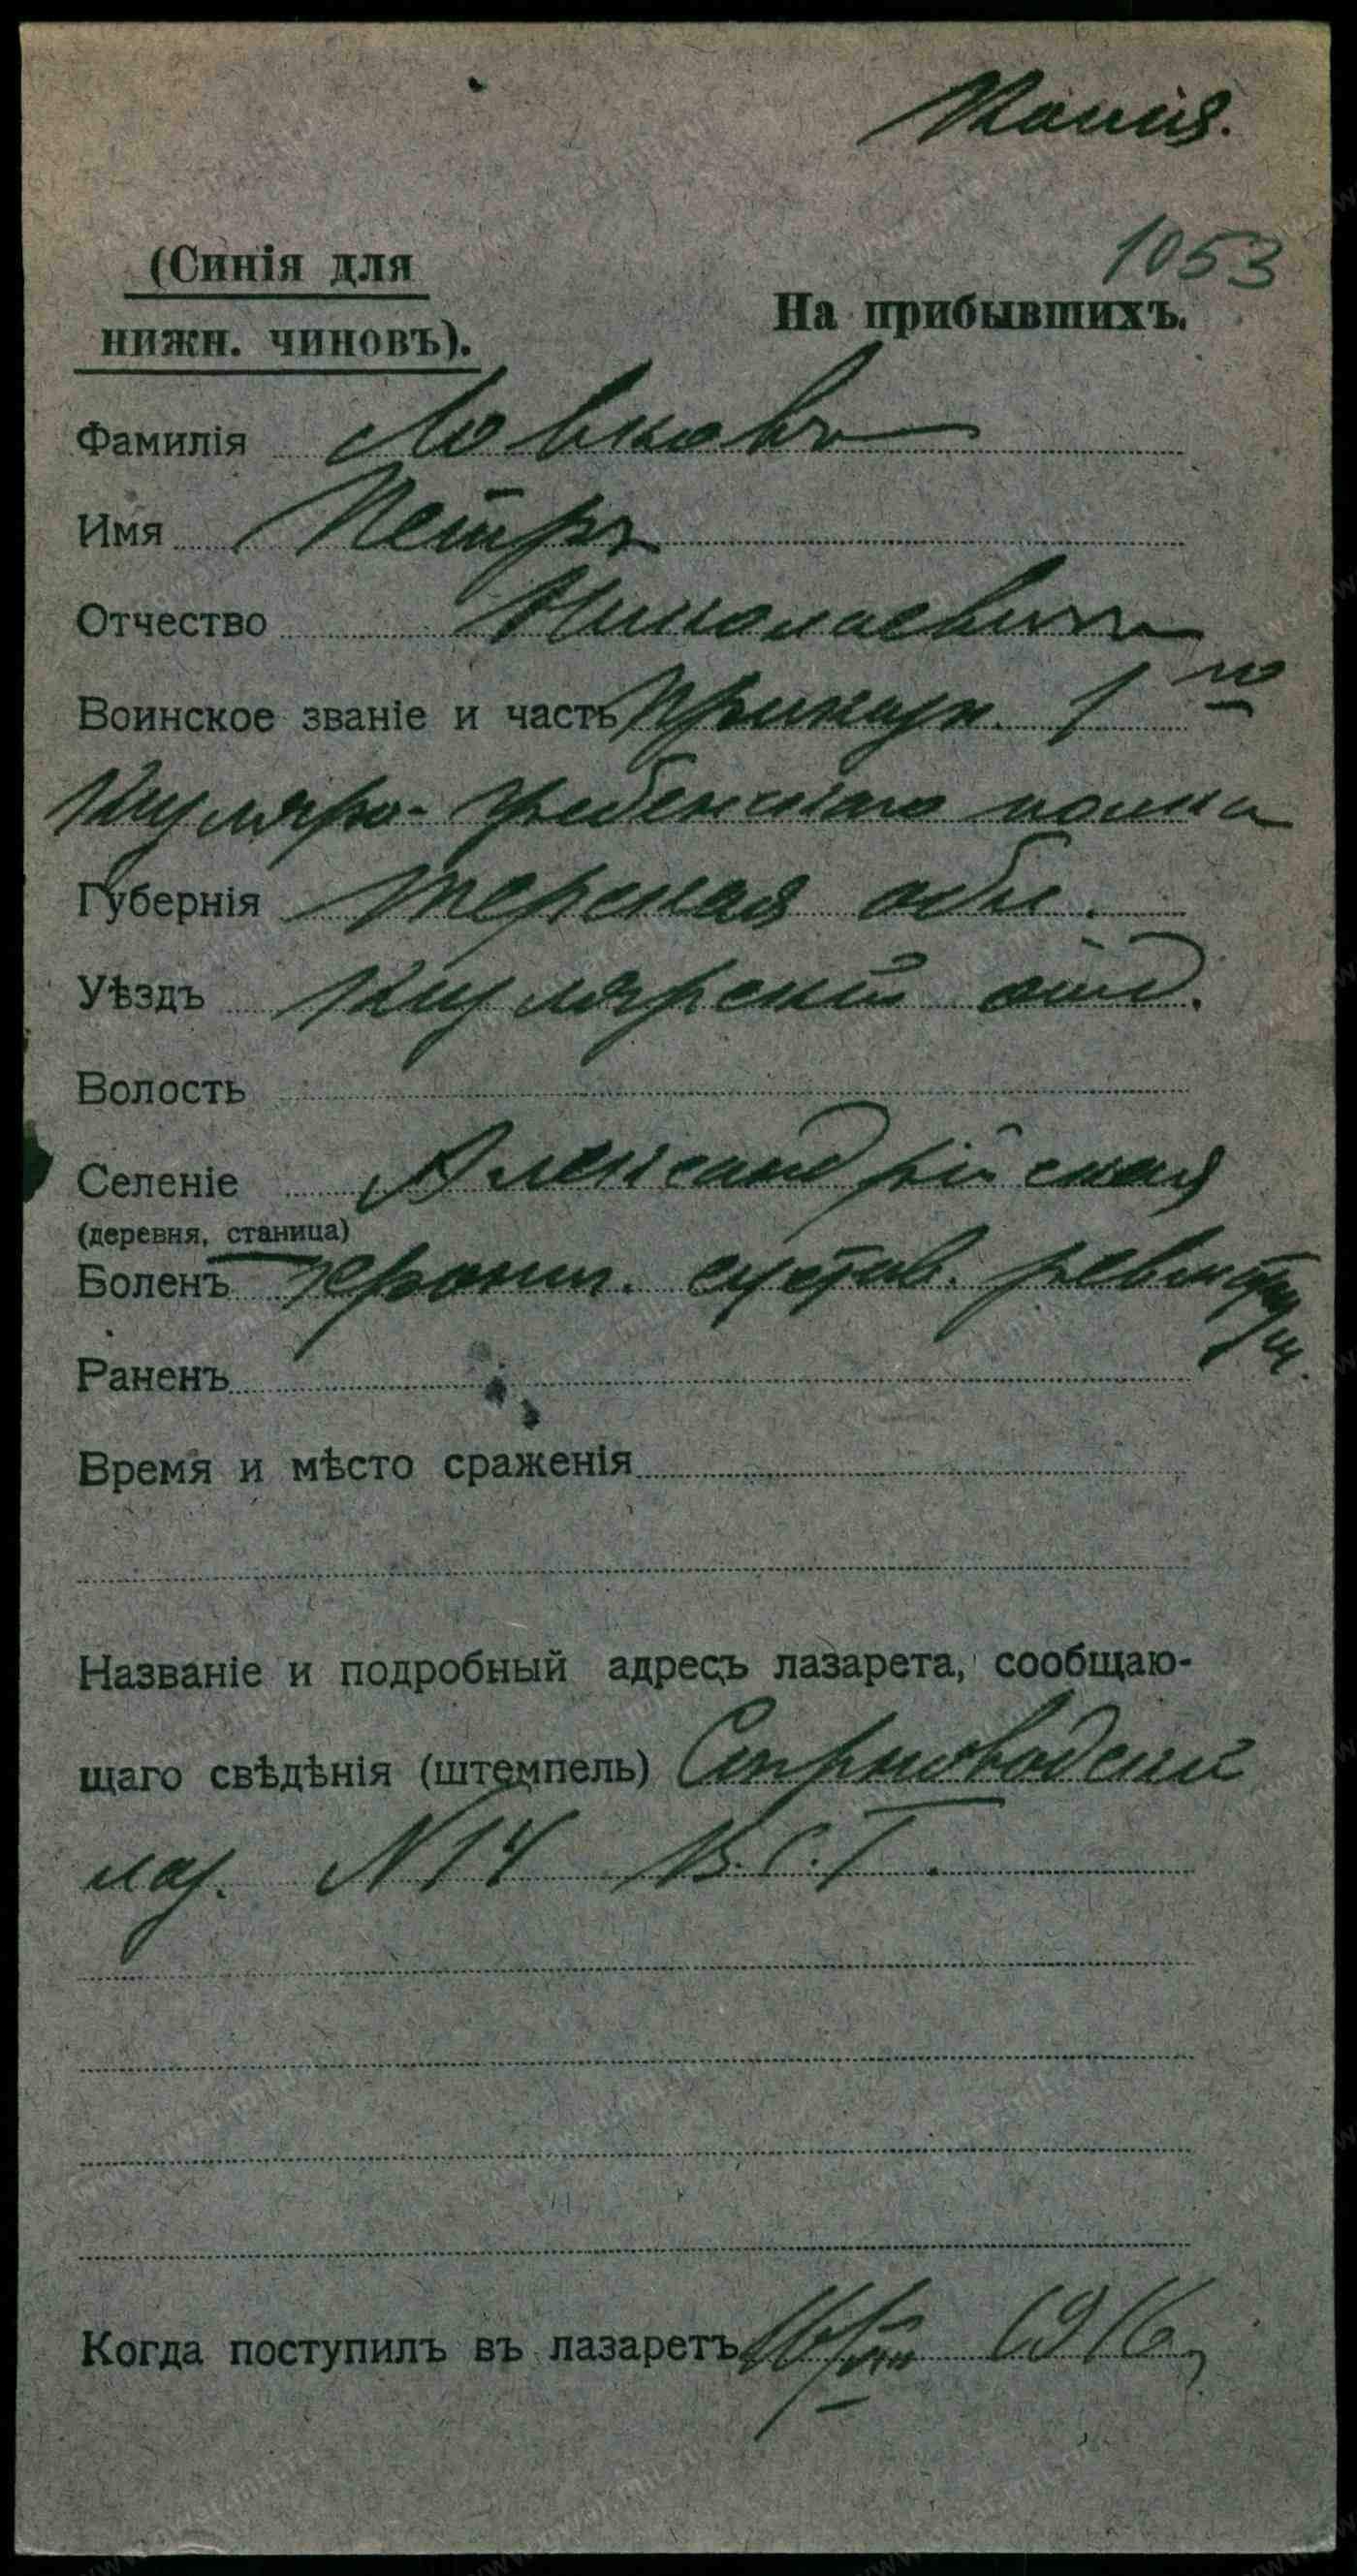 Копія.
1053
(Синія для
нижн. чиновъ).
На прибывшихъ.
Фамилія Ловковъ
Имя Петръ
Отчество Николаевичъ
Воинское званіе и часть Приказн. 1го
Кизляро-Гребенского полка
Губернія Терская обл.
Уѣздъ Кизлярскій отд.
Волость
Селеніе Александрійская
(деревня, станица)
Боленъ Хронич. сустав. ревматизм.
Раненъ
Время и мѣсто сраженія
Названіе и подробный адресъ лазарета, сообщаю-
щаго свѣдѣнія (штемпель) Серноводский
лаз. N 14 В.С.Г.
Когда поступилъ въ лазаретъ VIII 1916